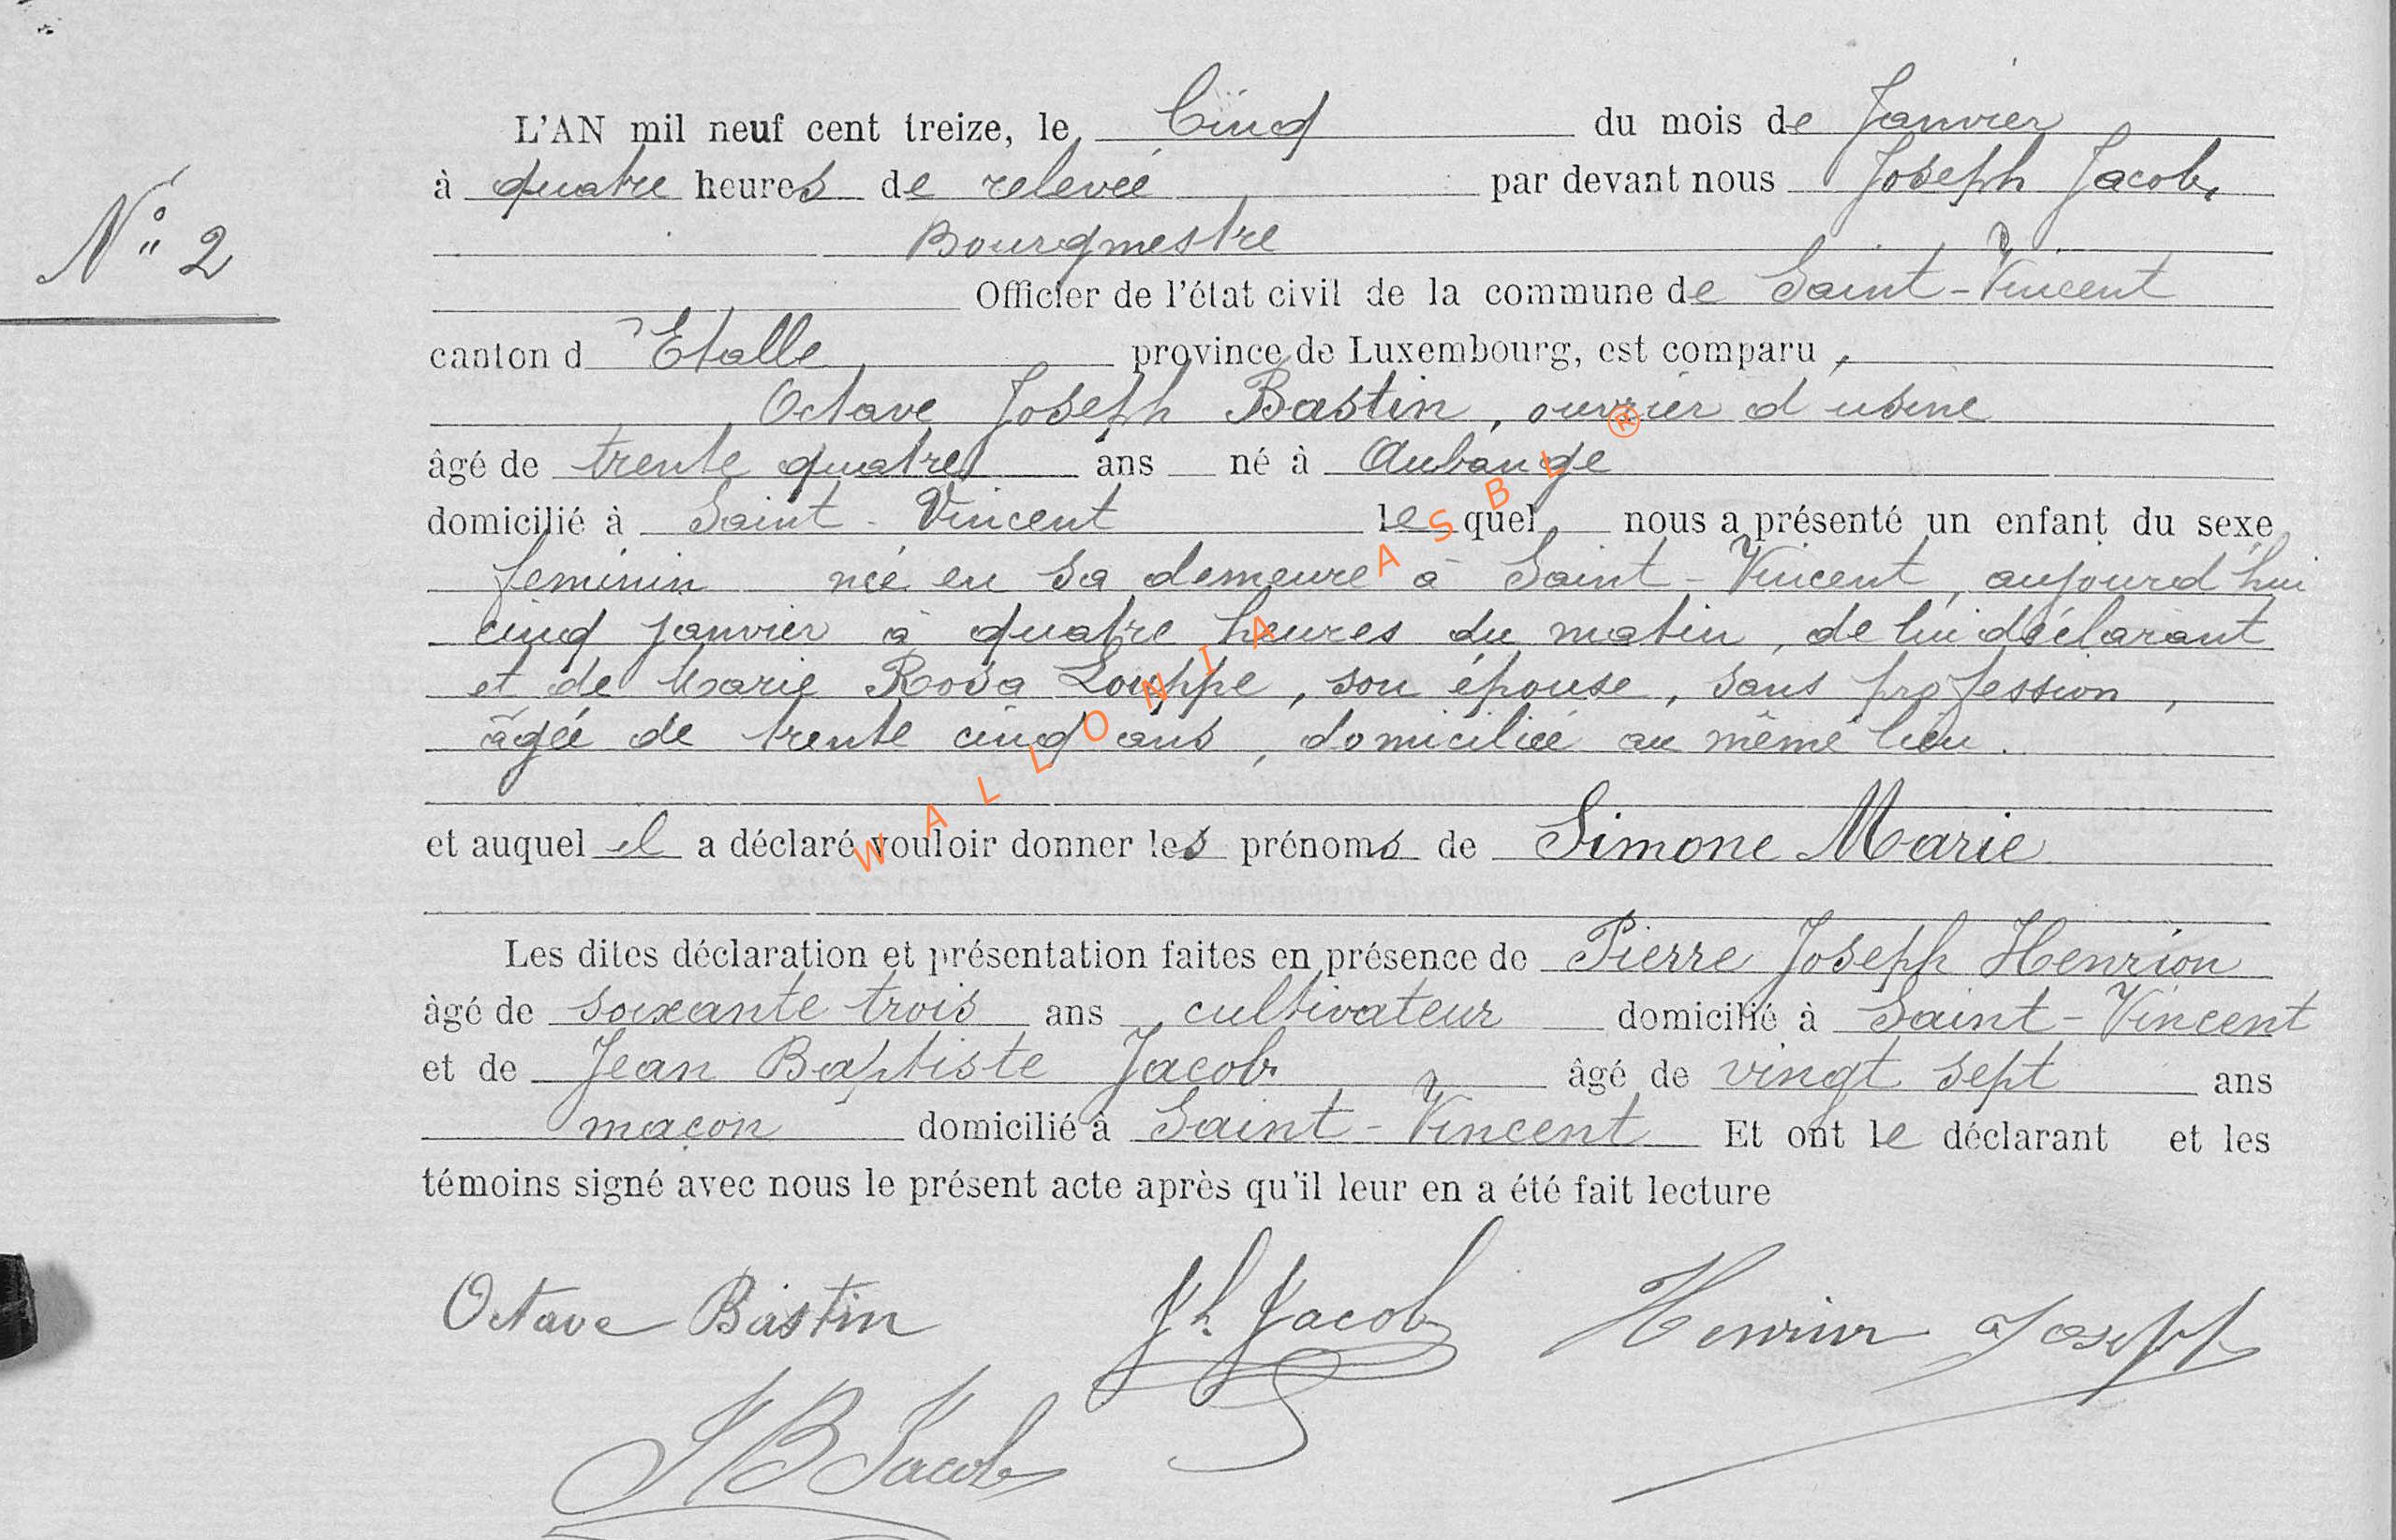 N° 2
L'AN mil neuf cent treize, le Cinq du mois de Janvier
à quatre heures de relevée par devant nous Joseph Jacob,
Bourgmestre
Officier de l'état civil de la commune de Saint-Vincent
canton d'Etalle province de Luxembourg, est comparu,
Octave Joseph Bastin, ouvrier d'usine
âgé de trente quatre ans né à Aubange
domicilié à Saint-Vincent lequel nous a présenté un enfant du sexe
féminin née en sa demeure à Saint-Vincent, aujourd'hui
cinq janvier à quatre heures du matin, de lui déclarant
et de Marie Rosa Louppe, son épouse, sans profession,
âgée de trente cinq ans, domiciliée au même lieu.
et auquel il a déclaré vouloir donner les prénoms de Simone Marie
Les dites déclaration et présentation faites en présence de Pierre Joseph Henrion
âgé de soixante trois ans cultivateur domicilié à Saint-Vincent
et de Jean Baptiste Jacob âgé de vingt sept ans
maçon domicilié à Saint-Vincent Et ont le déclarant et les
témoins signé avec nous le présent acte après qu'il leur en a été fait lecture
Octave Bastin Jh Jacob Henrion Joseph
J B Jacob
WALLONIA ASBL ®